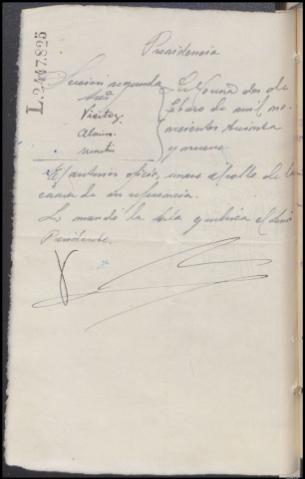 L.2447.825
Presidencia
Seccion segunda
Sres
Vieitez
Martin
Coruña dos de
Febrero de mil no-
vecientos treinta
y nueve
El anterior oficio, unase al rollo de la
causa de su referencia.
Lo mandó la Sala y rubrica el Señor
Presidente.